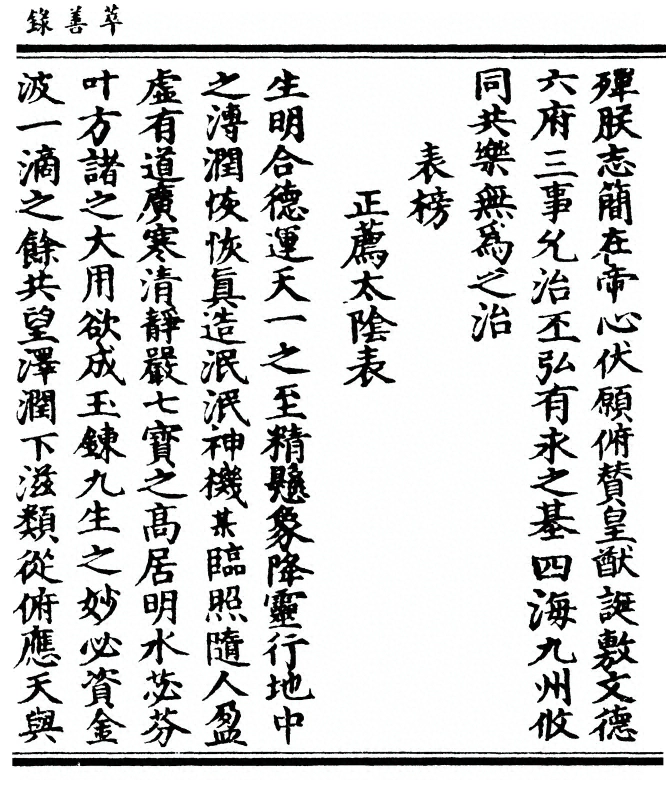 萃善錄
殫朕志簡在帝心伏願俯贊皇猷誕敷文德
六府三事允治丕弘有永之基四海九州攸
同共樂無爲之治
表榜
正薦太陰表
生明合德運天一之至精懸象降靈行地中
之溥潤恢恢眞造泯泯神機某臨照隨人盈
虛有道廣寒清靜嚴七寶之高居明水苾芬
叶方諸之大用欲成玉鍊九生之妙必資金
波一滴之餘共望澤潤下滋類從俯應天與